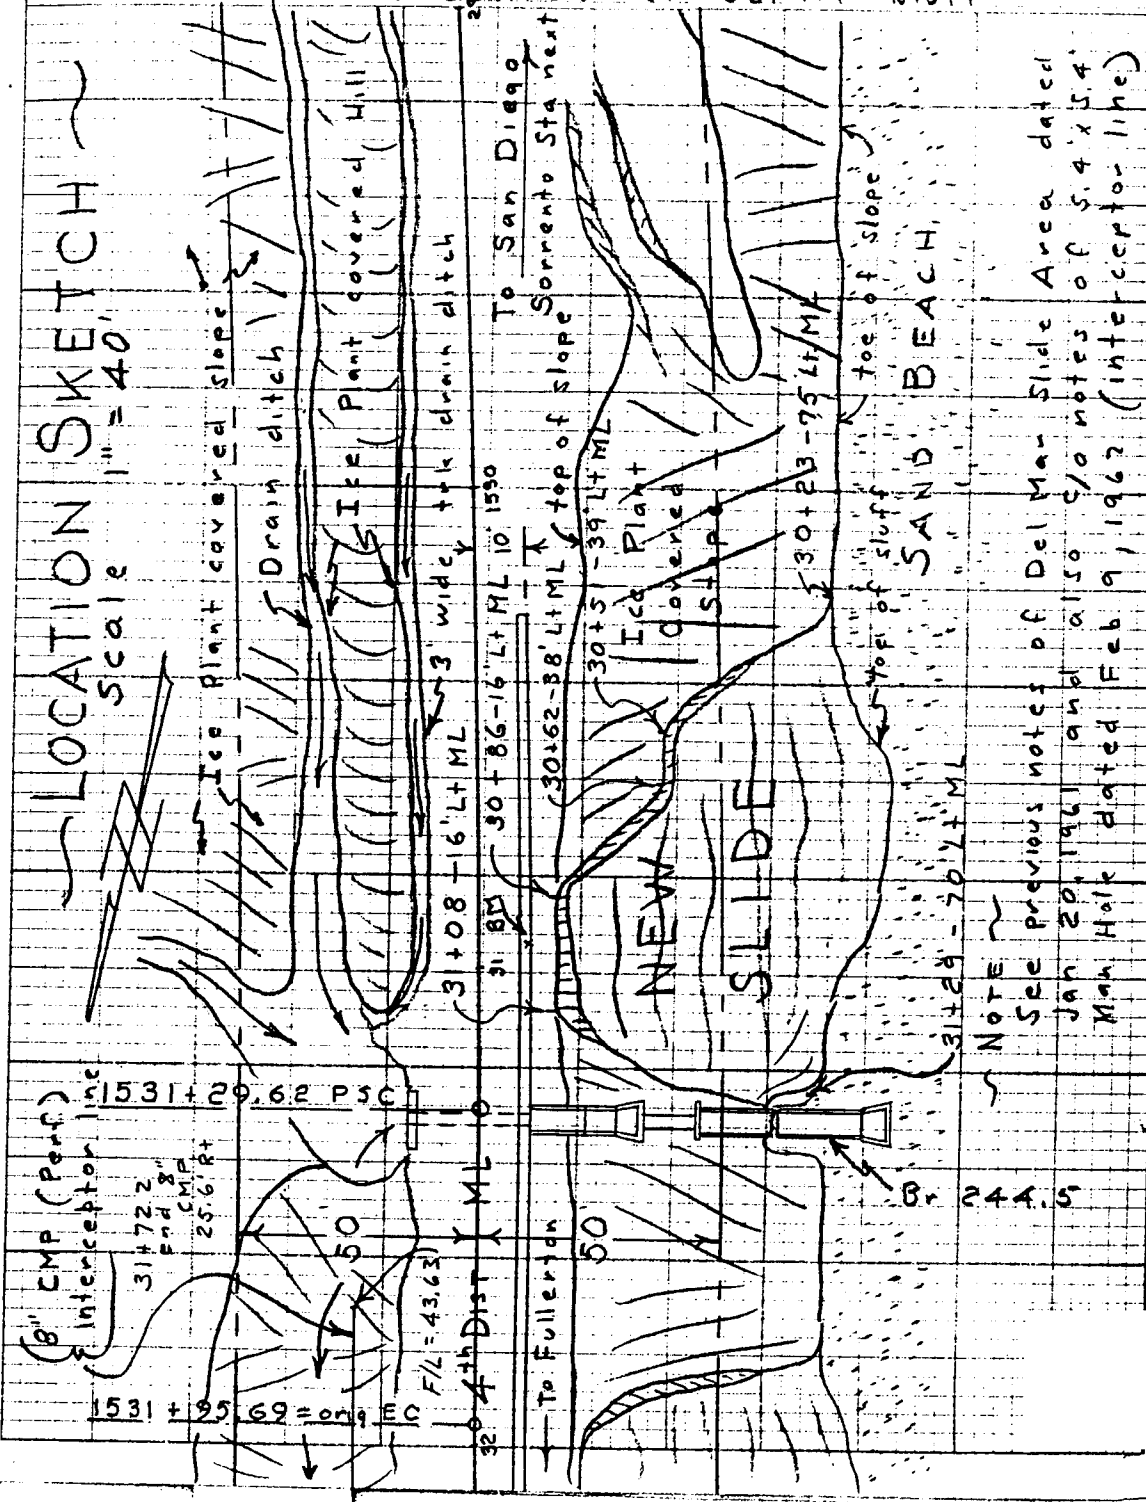 LOCATION SKETCH
Scale 1" = 40'
Ice plant covered slope
Drain ditch
Ice Plant covered Hill
3' wide trk drain ditch
(8" CMP (Perf.)
Interceptor line
31+72.2
end 8"
CMP
25.6' Rt
1531+29.62 PSC
1531+95.69 = orig EC
50'
F/L = 43.63
4th DIST
ML
32
31
BM
1530
31+08-16' Lt ML
30+86-16' Lt ML
10'
To San Diego
Sorrento Sta next
To Fullerton
50'
30+62-38' Lt ML
top of slope
30+51-39' Lt ML
Ice Plant
Covered
Slope
NEW
SLIDE
30+23-75' Lt ML
toe of slope
SAND BEACH
31+29-70' Lt ML
Br 244.5
NOTE
See previous notes of Del Mar Slide Area dated
Jan 20, 1961 and also c/o notes of 5.4' x 5.4'
Man Hole dated Feb 9, 1962 (interceptor line)